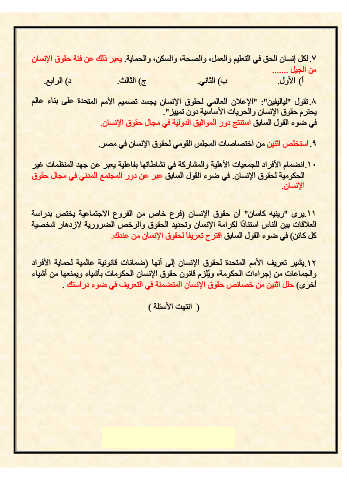 ٧.لكل إنسان الحق في التعليم والعمل، والصحة، والسكن، والحماية. يعبر ذلك عن فئة حقوق الإنسان
من الجيل .......
أ) الأول. ب) الثاني. ج) الثالث. د) الرابع.
٨.تقول "اليانفين": "الإعلان العالمي لحقوق الإنسان يجسد تصميم الأمم المتحدة على بناء عالم
يحترم حقوق الإنسان والحريات الأساسية دون تمييز".
في ضوء القول السابق استنتج دور المواثيق الدولية في مجال حقوق الإنسان.
٩.استخلص اثنين من اختصاصات المجلس القومي لحقوق الإنسان في مصر.
١٠.انضمام الأفراد للجمعيات الأهلية والمشاركة في نشاطاتها بفاعلية يعبر عن جهد المنظمات غير
الحكومية لحقوق الإنسان. في ضوء القول السابق عبر عن دور المجتمع المدني في مجال حقوق
الإنسان.
١١.يرى "رينيه كاسان" أن حقوق الإنسان (فرع خاص من الفروع الاجتماعية يختص بدراسة
العلاقات بين الناس استنادًا لكرامة الإنسان وتحديد الحقوق والرخص الضرورية لازدهار شخصية
كل كائن) في ضوء القول السابق اقترح تعريفًا لحقوق الإنسان من عندك.
١٢.يشير تعريف الأمم المتحدة لحقوق الإنسان إلى أنها (ضمانات قانونية عالمية لحماية الأفراد
والجماعات من إجراءات الحكومة، ويلزم قانون حقوق الإنسان الحكومات بأشياء ويمنعها من أشياء
أخرى) حلل اثنين من خصائص حقوق الإنسان المتضمنة في التعريف في ضوء دراستك .
( انتهت الأسئلة )